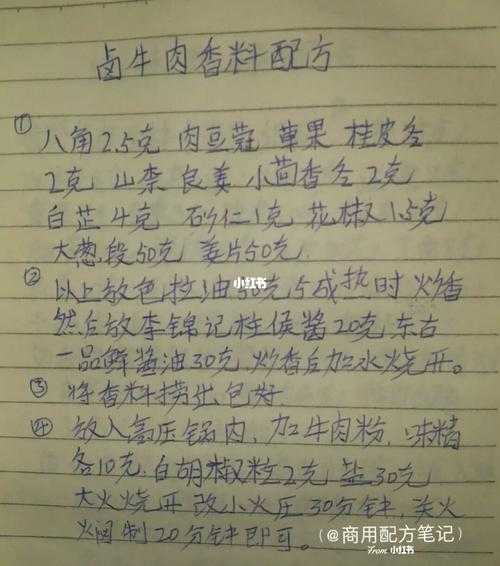 卤牛肉香料配方
① 八角2.5克 肉豆蔻 草果 桂皮各
2克 山柰 良姜 小茴香各2克
白芷4克 砂仁1克 花椒1.5克
大葱段50克 姜片50克
小红书
② 以上放色拉油50克5成热时 炒香
然后放李锦记柱侯酱20克 东古
一品鲜酱油30克 炒香后加水烧开。
③ 将香料捞出包好
④ 放入高压锅内,加牛肉粉,味精
各10克,白胡椒粒2克 盐30克
大火烧开 改小火压30分钟,关火
焖制20分钟即可。
(@商用配方笔记)
From 小红书